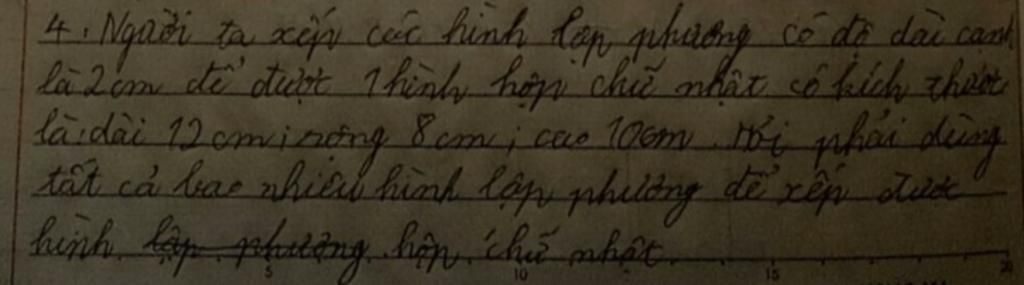 4. Người ta xếp các hình lập phương có độ dài cạnh
là 2cm để được 1 hình hộp chữ nhật có kích thước
là: dài 12 cm; rộng 8cm; cao 10cm. Hỏi phải dùng
tất cả bao nhiêu hình lập phương để xếp được
hình lập phương hộp chữ nhật.
5 10 15 20